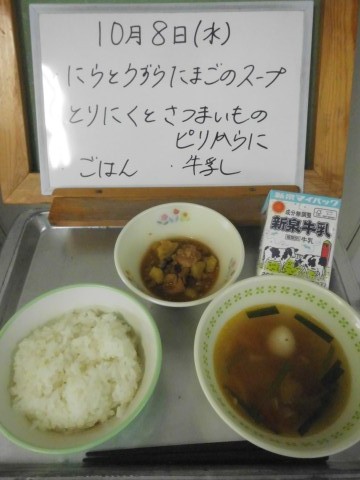 10月8日(水)
にらとうずらたまごのスープ
とりにくとさつまいもの
ピリからに
ごはん ・牛乳し
成分無調整
新泉牛乳